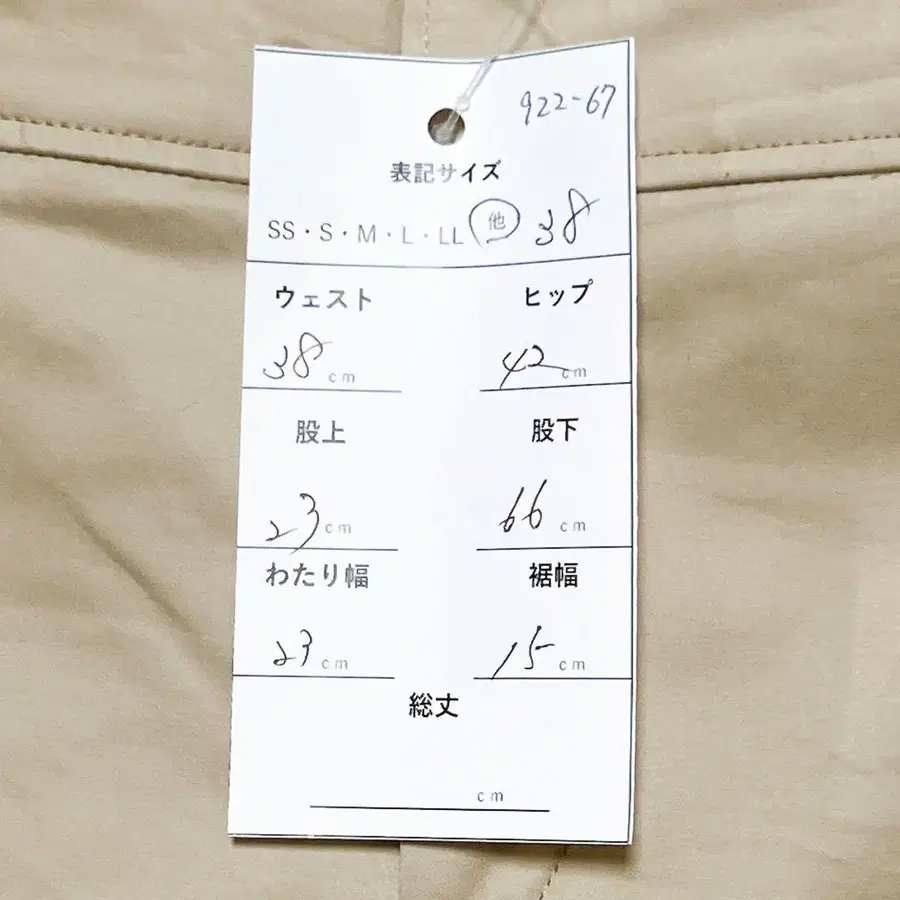 922-67
表記サイズ
SS・S・M・L・LL 他 38
ウェスト ヒップ
38 cm 42 cm
股上 股下
23 cm 66 cm
わたり幅 裾幅
23 cm 15 cm
総丈
cm